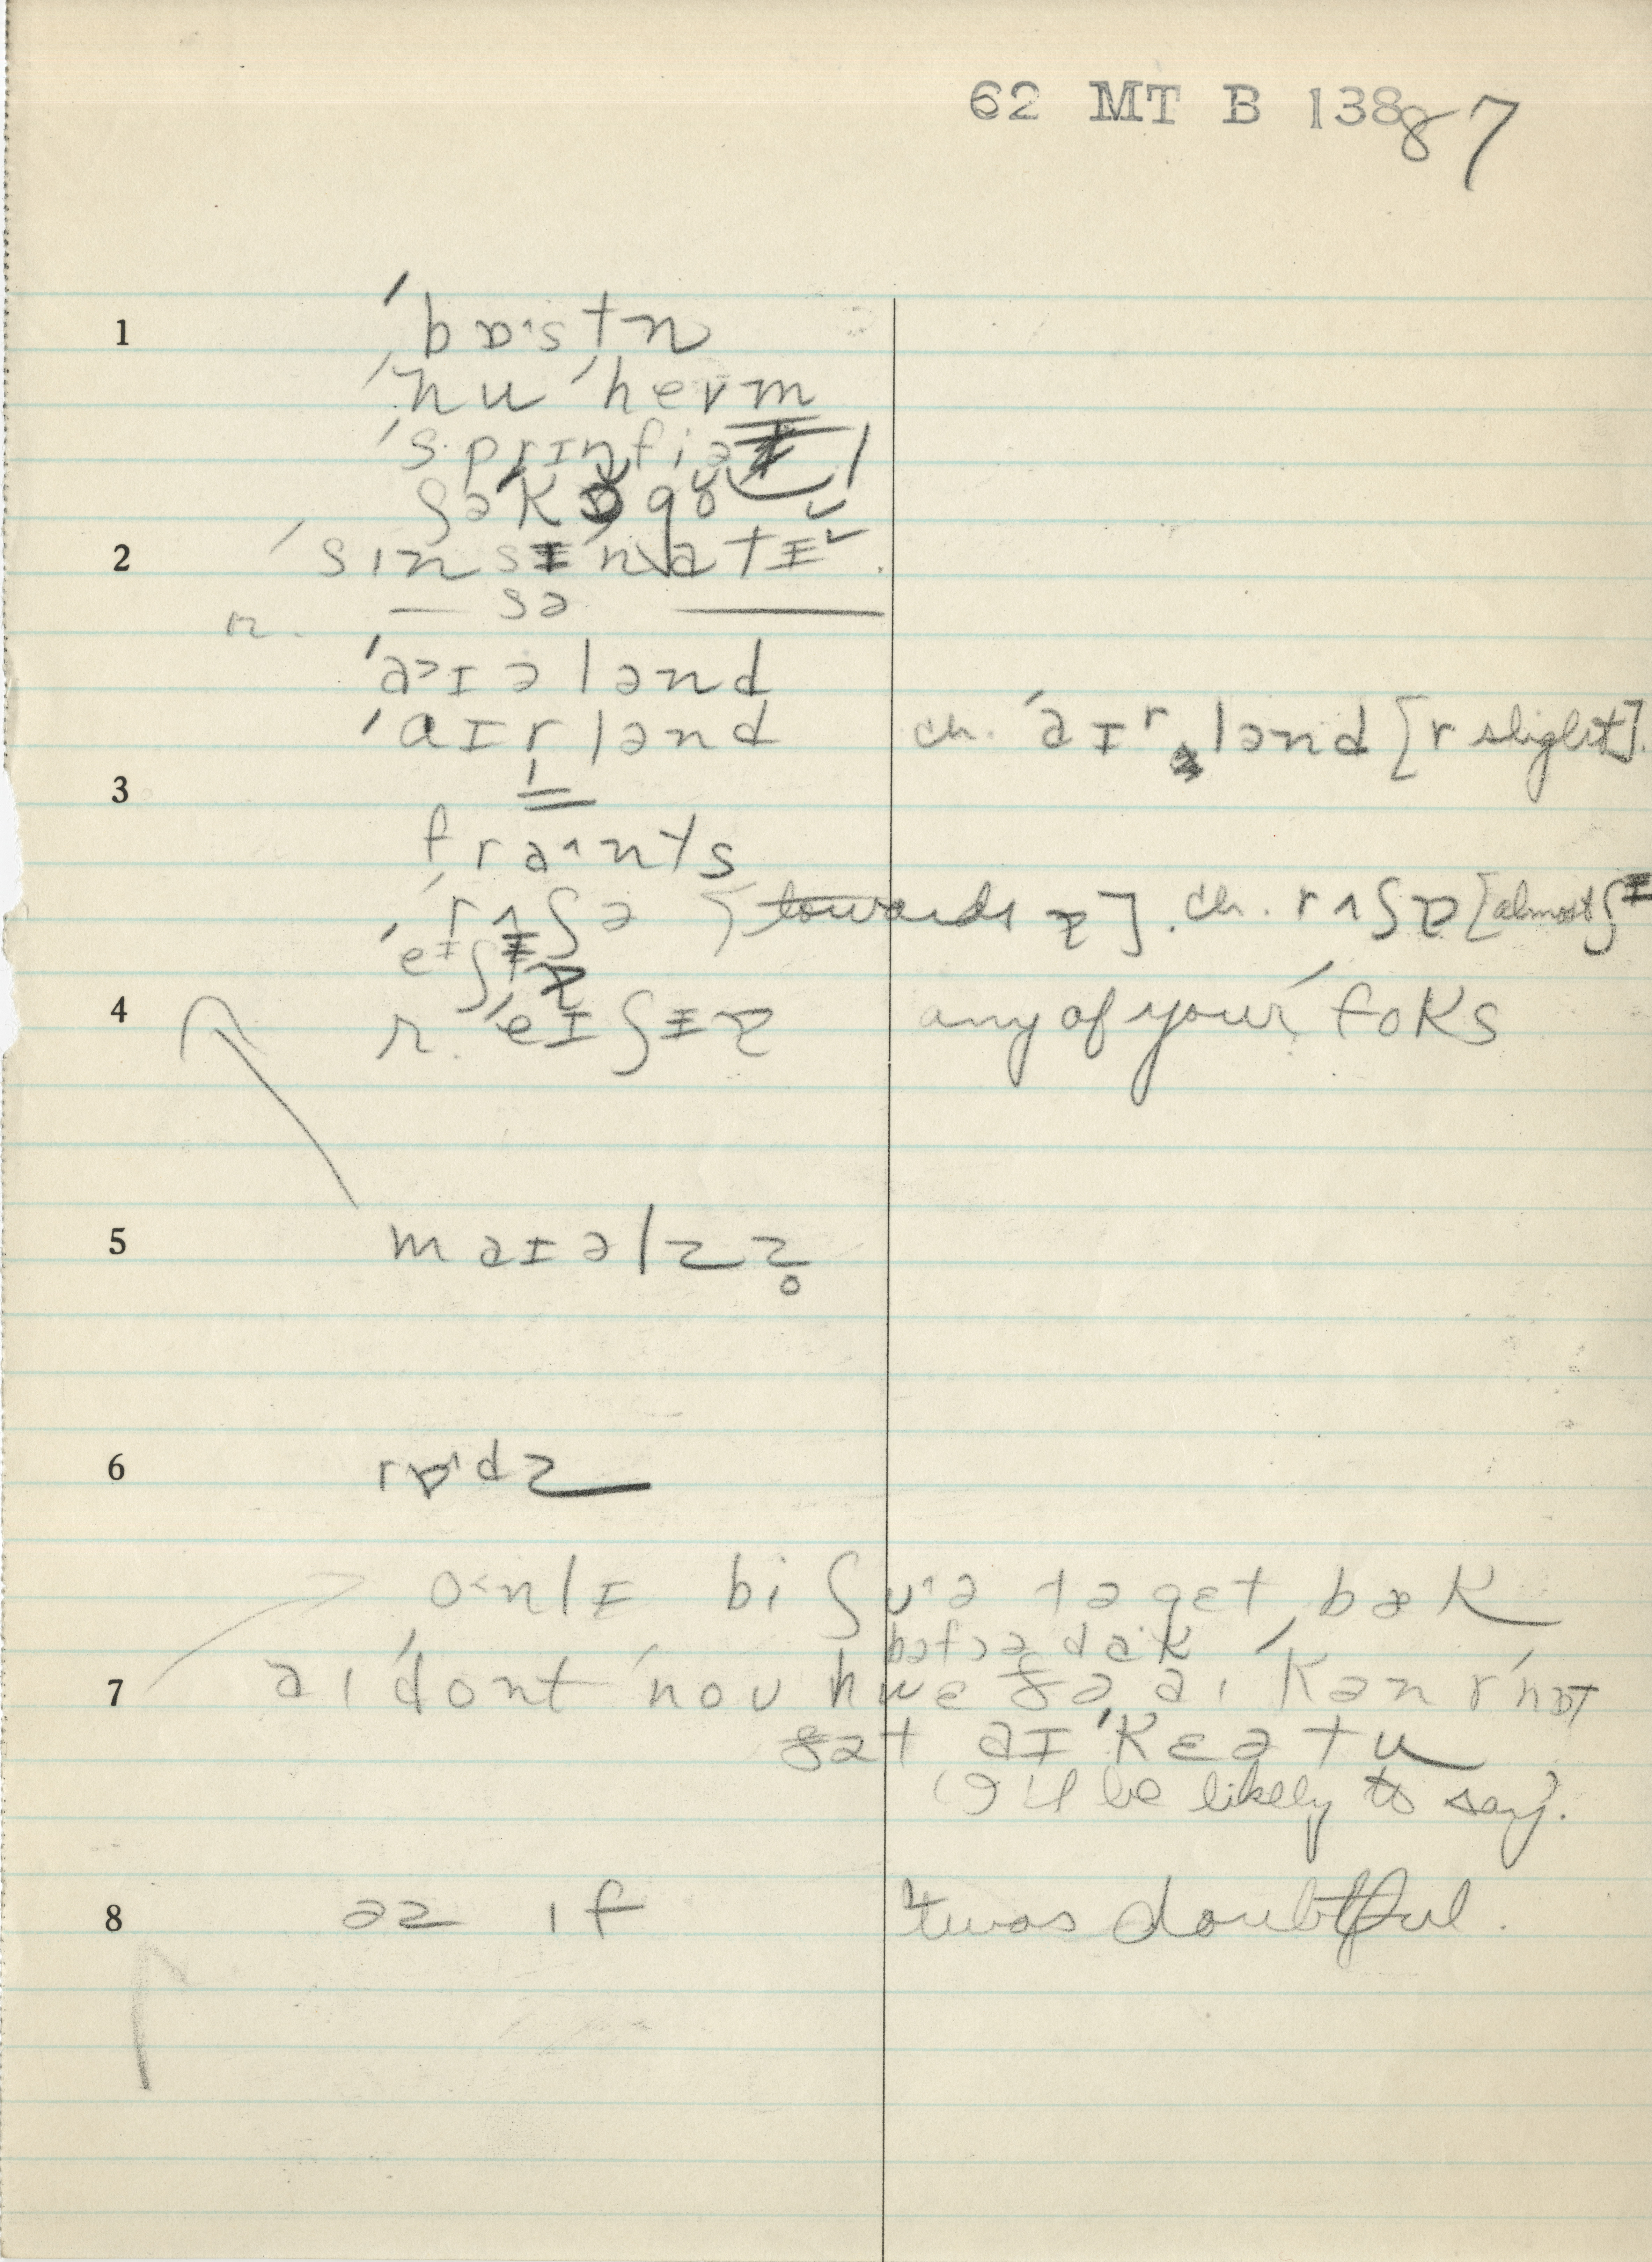 62 MT B 138 87
1 ˈbɒˑstn
ˈnu ˈhevm
ˈsprɪŋfiə
ʃəˈkɒgɵ
2 ˈsɪnsɪˈnatɨ
— sə —
r.
ˈaɪələnd
ˈɑɪrlənd ch. ˈaɪʳlənd [r slight].
3
fraˑnts
ˈrʌʃə [towards ɪ]. ch. rʌʃɪ [almost ʃɨ
ˈeɪʃɨ
4 r. ˈeɪʃɨ any of your ˈfoks
5 maɪəlz z̥
6 rɒˑdz
o˂nlɪ bi ʃʊˑə tə gɛt bæk
bəfɔə dɑˑk
7 aɪ ˈdont ˈnoʊ hwɛðə aɪ ˈkæn r ˈnɒt
ðət aɪ ˈkɛə tu
(I'll be likely to say).
8 əz ɪf 'twas doubtful.